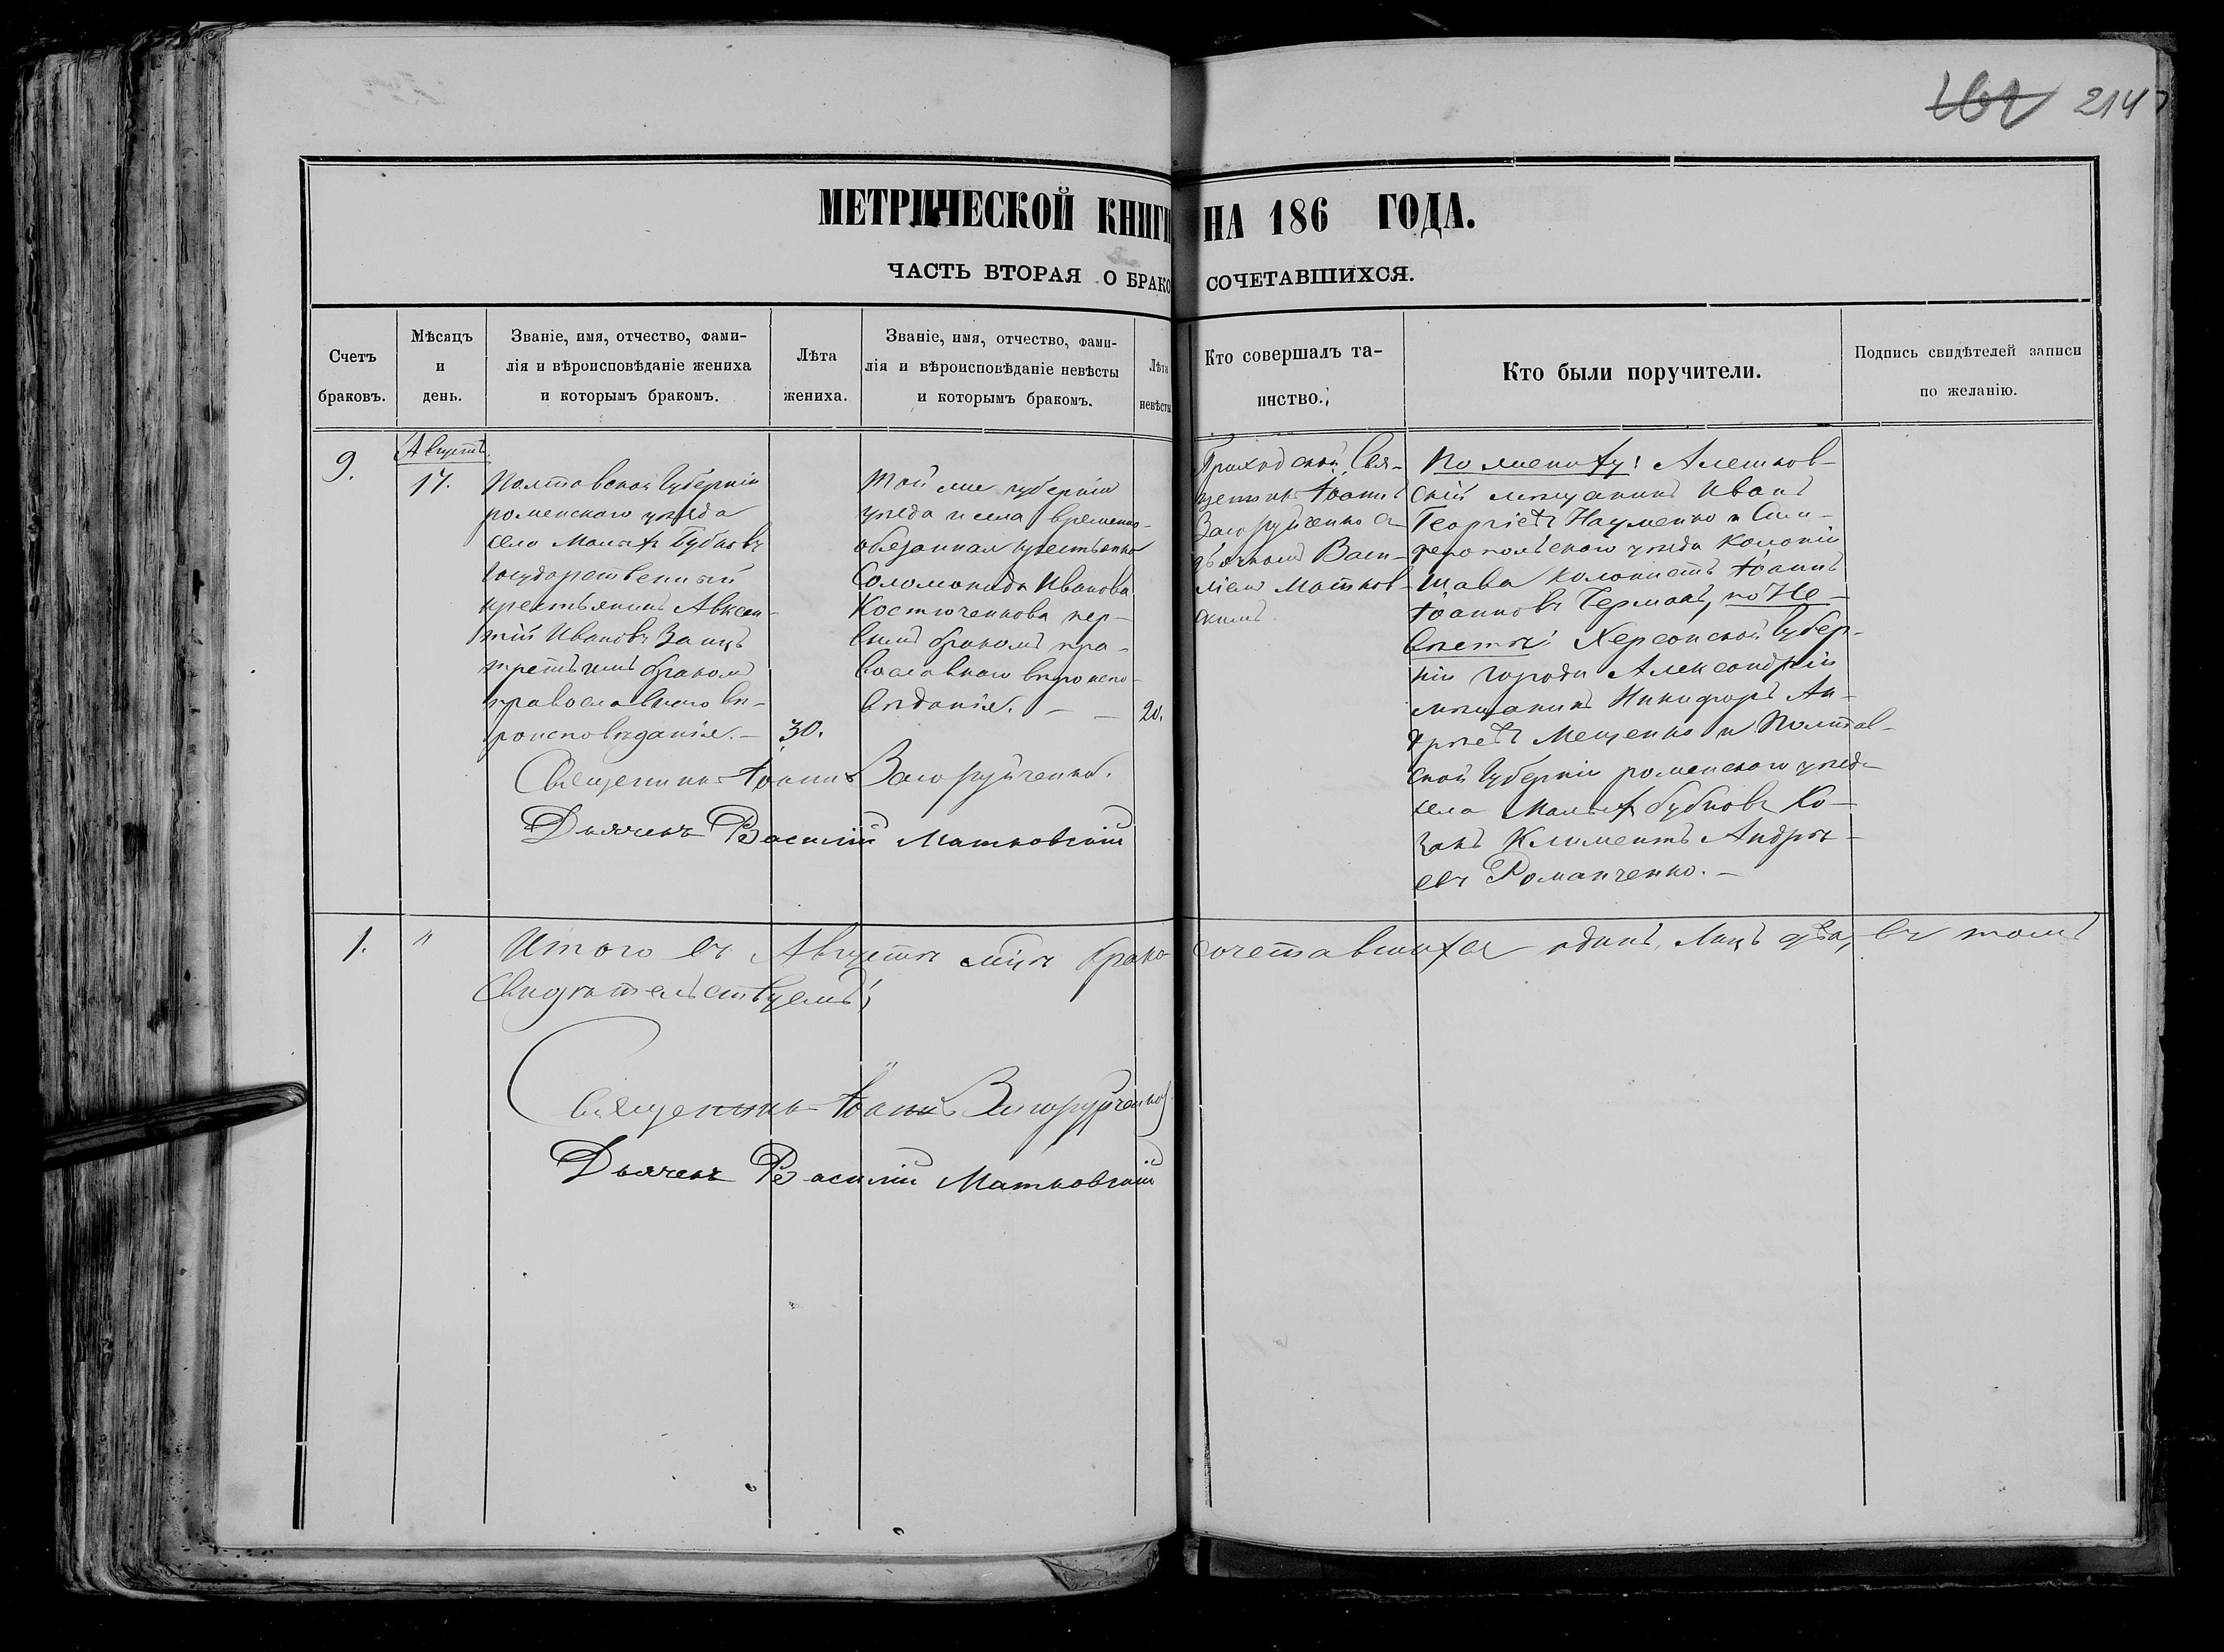 214
МЕТРИЧЕСКОЙ КНИГИ НА 186 ГОДА.
ЧАСТЬ ВТОРАЯ О БРАКОСОЧЕТАВШИХСЯ.
Счетъ браковъ.
Мѣсяцъ и день.
Званіе, имя, отчество, фами-
лія и вѣроисповѣданіе жениха
и которымъ бракомъ.
Лѣта жениха.
Званіе, имя, отчество, фами-
лія и вѣроисповѣданіе невѣсты
и которымъ бракомъ.
Лѣта невѣсты
Кто совершалъ та-
инство.
Кто были поручители.
Подпись свидѣтелей записи
по желанію.
9.
Августъ.
17.
Полтавской Губерніи
роменскаго уѣзда
села Малыхъ Бубновъ
Государственный
крестьянинъ Авксен-
тій Ивановъ Заицъ
третьимъ бракомъ
православнаго вѣ-
роисповѣданія. —
30.
Той же губерніи
уѣзда и села временно-
обязанная крестьянка
Соломонида Иванова
Костюченкова пер-
вымъ бракомъ пра-
вославнаго вѣроиспо-
вѣданія. — —
20.
Приходскій Свя-
щенникъ Іоаннъ
Загоруйченко съ
дьячкомъ Васи-
ліем Матков-
скимъ.
По жениху: Алешков-
скій мещанинъ Иванъ
Георгіевъ Науменко и Сим-
феропольскаго уѣзда колоніи
колонистъ Іоаннъ
Іоанновъ Германъ, по Не-
вѣстѣ: Херсонской Губер-
ніи города Александріи
мещанинъ Никифоръ Ан-
дреевъ Мещенко и Полтав-
ской Губерніи роменскаго уѣзда
села Малыхъ Бубновъ Ко-
закъ Климентъ Андрѣ-
евъ Романченко. —
Священникъ Іоаннъ Загоруйченко.
Дьячекъ Василій Матковскій
1.
"
Итого въ Августѣ мѣцѣ бракосочетавшихся одинъ, лицъ два, въ томъ
Свидѣтельствуемъ:
Священникъ Іоаннъ Загоруйченко
Дьячекъ Василій Матковскій